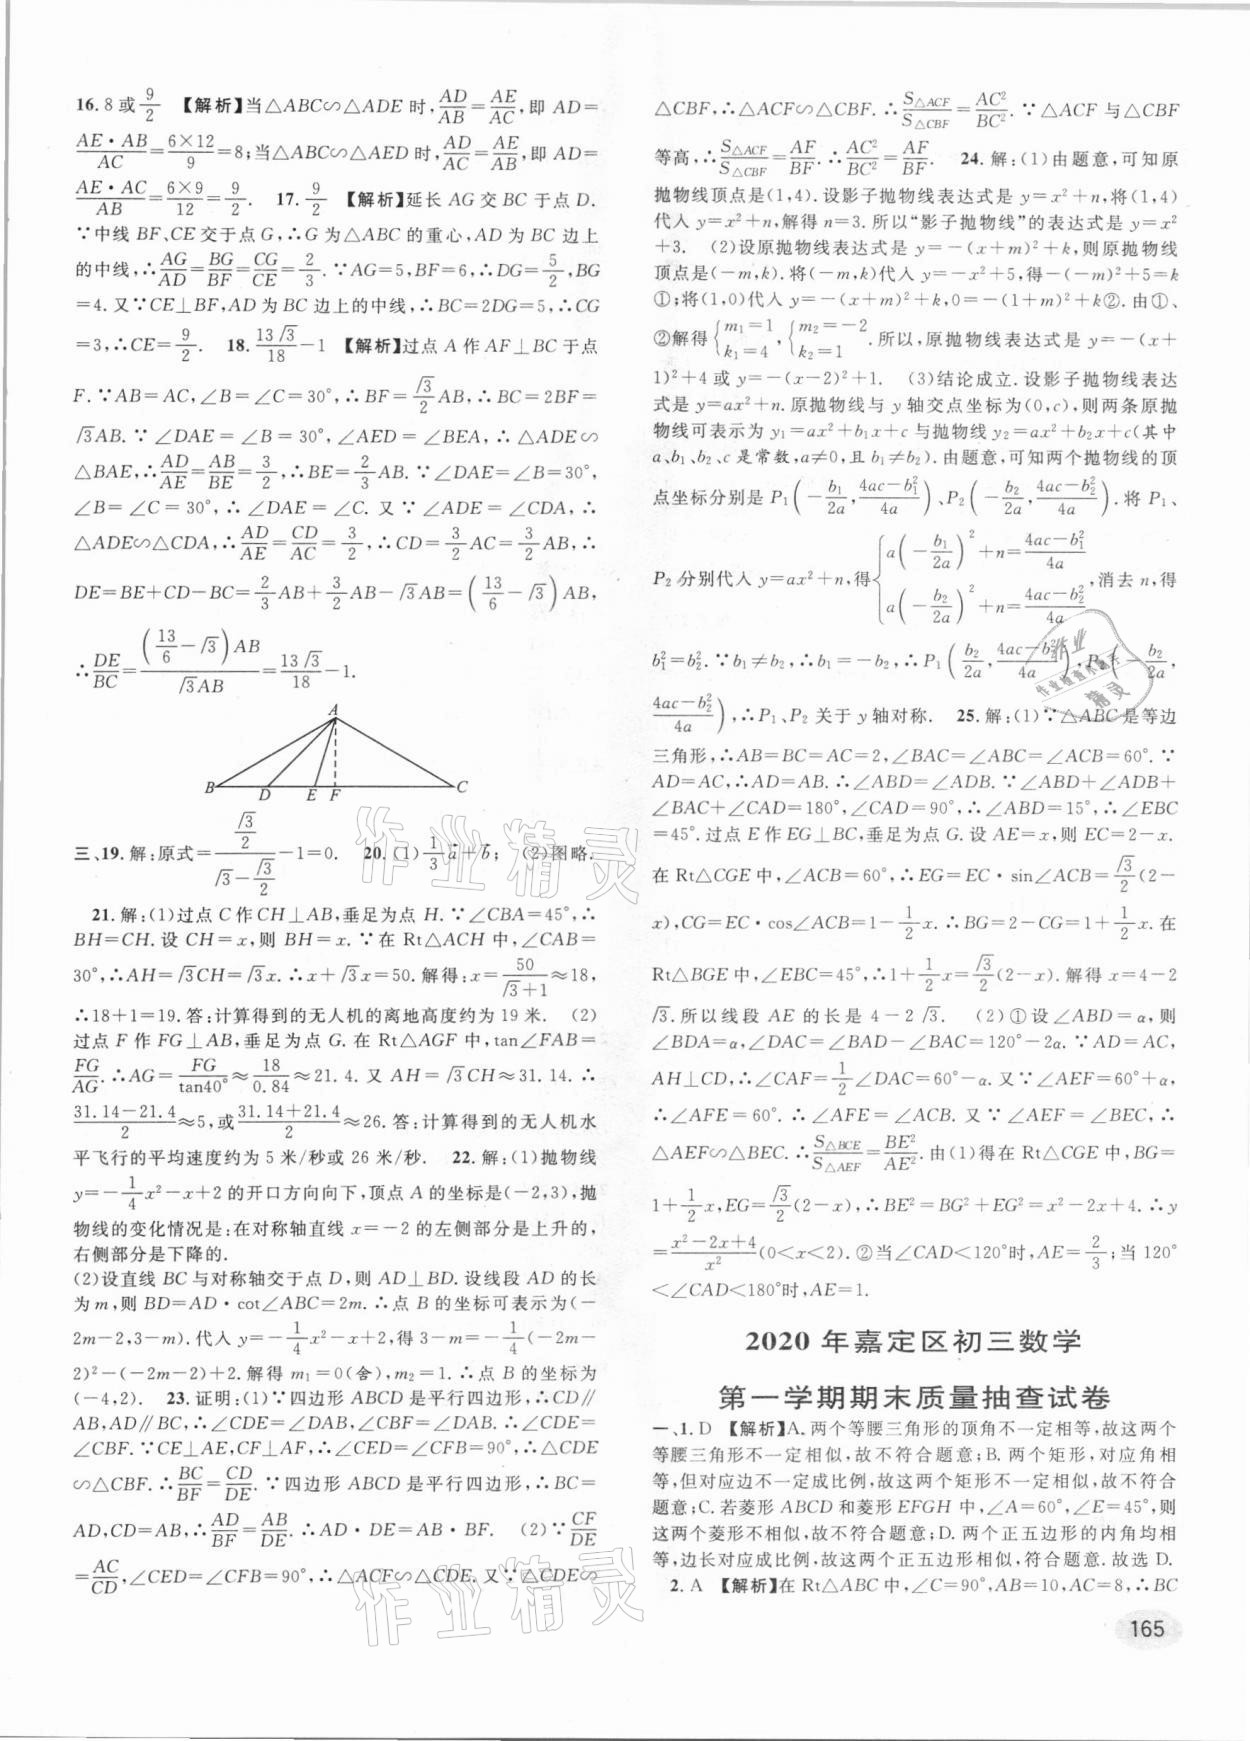 16. 8或9/2 【解析】当△ABC∽△ADE时,AD/AB=AE/AC,即AD=
AE·AB/AC=6×12/9=8;当△ABC∽△AED时,AD/AC=AE/AB,即AD=
AE·AC/AB=6×9/12=9/2. 17. 9/2 【解析】延长AG交BC于点D.
∵中线BF,CE交于点G,∴G为△ABC的重心,AD为BC边上
的中线,∴AG/AD=BG/BF=CG/CE=2/3.∵AG=5,BF=6,∴DG=5/2,BG
=4.又∵CE⊥BF,AD为BC边上的中线,∴BC=2DG=5,∴CG
=3,∴CE=9/2. 18. 13√3/18-1 【解析】过点A作AF⊥BC于点
F.∵AB=AC,∠B=∠C=30°,∴BF=√3/2AB,∴BC=2BF=
√3AB.∵∠DAE=∠B=30°,∠AED=∠BEA,∴△ADE∽
△BAE,∴AD/AE=AB/BE=3/2,∴BE=2/3AB.∵∠DAE=∠B=30°,
∠B=∠C=30°,∴∠DAE=∠C.又∵∠ADE=∠CDA,∴
△ADE∽△CDA,∴AD/AE=CD/AC=3/2,∴CD=3/2AC=3/2AB,∴
DE=BE+CD-BC=2/3AB+3/2AB-√3AB=(13/6-√3)AB,
∴DE/BC=(13/6-√3)AB/√3AB=13√3/18-1.
A
B D E F C
三、19.解:原式=(√3/2)/(√3-√3/2)-1=0. 20.(1)1/3a⃗+b⃗; (2)图略.
21.解:(1)过点C作CH⊥AB,垂足为点H.∵∠CBA=45°,∴
BH=CH.设CH=x,则BH=x.∵在Rt△ACH中,∠CAB=
30°,∴AH=√3CH=√3x.∴x+√3x=50.解得:x=50/(√3+1)≈18,
∴18+1=19.答:计算得到的无人机的离地高度约为19米. (2)
过点F作FG⊥AB,垂足为点G.在Rt△AGF中,tan∠FAB=
FG/AG.∴AG=FG/tan40°≈18/0.84≈21.4.又AH=√3CH≈31.14.∴
(31.14-21.4)/2≈5,或(31.14+21.4)/2≈26.答:计算得到的无人机水
平飞行的平均速度约为5米/秒或26米/秒. 22.解:(1)抛物线
y=-1/4x²-x+2的开口方向向下,顶点A的坐标是(-2,3),抛
物线的变化情况是:在对称轴直线x=-2的左侧部分是上升的,
右侧部分是下降的.
(2)设直线BC与对称轴交于点D,则AD⊥BD.设线段AD的长
为m,则BD=AD·cot∠ABC=2m.∴点B的坐标可表示为(-
2m-2,3-m).代入y=-1/4x²-x+2,得3-m=-1/4(-2m-
2)²-(-2m-2)+2.解得m₁=0(舍),m₂=1.∴点B的坐标为
(-4,2). 23.证明:(1)∵四边形ABCD是平行四边形,∴CD∥
AB,AD∥BC,∴∠CDE=∠DAB,∠CBF=∠DAB,∴∠CDE=
∠CBF.∵CE⊥AE,CF⊥AF,∴∠CED=∠CFB=90°,∴△CDE
∽△CBF.∴BC/BF=CD/DE.∵四边形ABCD是平行四边形,∴BC=
AD,CD=AB,∴AD/BF=AB/DE.∴AD·DE=AB·BF. (2)∵CF/DE
=AC/CD,∠CED=∠CFB=90°,∴△ACF∽△CDE.又∵△CDE∽
△CBF,∴△ACF∽△CBF.∴S△ACF/S△CBF=AC²/BC².∵△ACF与△CBF
等高,∴S△ACF/S△CBF=AF/BF.∴AC²/BC²=AF/BF. 24.解:(1)由题意,可知原
抛物线顶点是(1,4).设影子抛物线表达式是y=x²+n,将(1,4)
代入y=x²+n,解得n=3.所以“影子抛物线”的表达式是y=x²
+3. (2)设原抛物线表达式是y=-(x+m)²+k,则原抛物线
顶点是(-m,k).将(-m,k)代入y=-x²+5,得-(-m)²+5=k
①;将(1,0)代入y=-(x+m)²+k,0=-(1+m)²+k②.由①、
②解得{m₁=1 k₁=4,{m₂=-2 k₂=1.所以,原抛物线表达式是y=-(x+
1)²+4或y=-(x-2)²+1. (3)结论成立.设影子抛物线表达
式是y=ax²+n.原抛物线与y轴交点坐标为(0,c),则两条原抛
物线可表示为y₁=ax²+b₁x+c与抛物线y₂=ax²+b₂x+c(其中
a、b₁、b₂、c是常数,a≠0,且b₁≠b₂).由题意,可知两个抛物线的顶
点坐标分别是P₁(-b₁/2a,(4ac-b₁²)/4a)、P₂(-b₂/2a,(4ac-b₂²)/4a).将P₁、
P₂分别代入y=ax²+n,得{a(-b₁/2a)²+n=(4ac-b₁²)/4a a(-b₂/2a)²+n=(4ac-b₂²)/4a,消去n,得
b₁²=b₂².∵b₁≠b₂,∴b₁=-b₂,∴P₁(b₂/2a,(4ac-b₂²)/4a),P₂(-b₂/2a,
(4ac-b₂²)/4a),∴P₁、P₂关于y轴对称. 25.解:(1)∵△ABC是等边
三角形,∴AB=BC=AC=2,∠BAC=∠ABC=∠ACB=60°.∵
AD=AC,∴AD=AB.∴∠ABD=∠ADB.∵∠ABD+∠ADB+
∠BAC+∠CAD=180°,∠CAD=90°,∴∠ABD=15°,∴∠EBC
=45°.过点E作EG⊥BC,垂足为点G.设AE=x,则EC=2-x.
在Rt△CGE中,∠ACB=60°,∴EG=EC·sin∠ACB=√3/2(2-
x),CG=EC·cos∠ACB=1-1/2x.∴BG=2-CG=1+1/2x.在
Rt△BGE中,∠EBC=45°,∴1+1/2x=√3/2(2-x).解得x=4-2
√3.所以线段AE的长是4-2√3. (2)①设∠ABD=α,则
∠BDA=α,∠DAC=∠BAD-∠BAC=120°-2α.∵AD=AC,
AH⊥CD,∴∠CAF=1/2∠DAC=60°-α.又∵∠AEF=60°+α,
∴∠AFE=60°.∴∠AFE=∠ACB.又∵∠AEF=∠BEC,∴
△AEF∽△BEC.∴S△BCE/S△AEF=BE²/AE².由(1)得在Rt△CGE中,BG=
1+1/2x,EG=√3/2(2-x),∴BE²=BG²+EG²=x²-2x+4.∴y
=(x²-2x+4)/x²(0<x<2).②当∠CAD<120°时,AE=2/3;当120°
<∠CAD<180°时,AE=1.
2020年嘉定区初三数学
第一学期期末质量抽查试卷
一、1.D 【解析】A.两个等腰三角形的顶角不一定相等,故这两个
等腰三角形不一定相似,故不符合题意;B.两个矩形,对应角相
等,但对应边不一定成比例,故这两个矩形不一定相似,故不符合
题意;C.若菱形ABCD和菱形EFGH中,∠A=60°,∠E=45°,则
这两个菱形不相似,故不符合题意;D.两个正五边形的内角均相
等,边长对应成比例,故这两个正五边形相似,符合题意.故选D.
2.A 【解析】在Rt△ABC中,∠C=90°,AB=10,AC=8,∴BC
165
作业精灵
作业精灵
作业
作业检查小助手
精灵